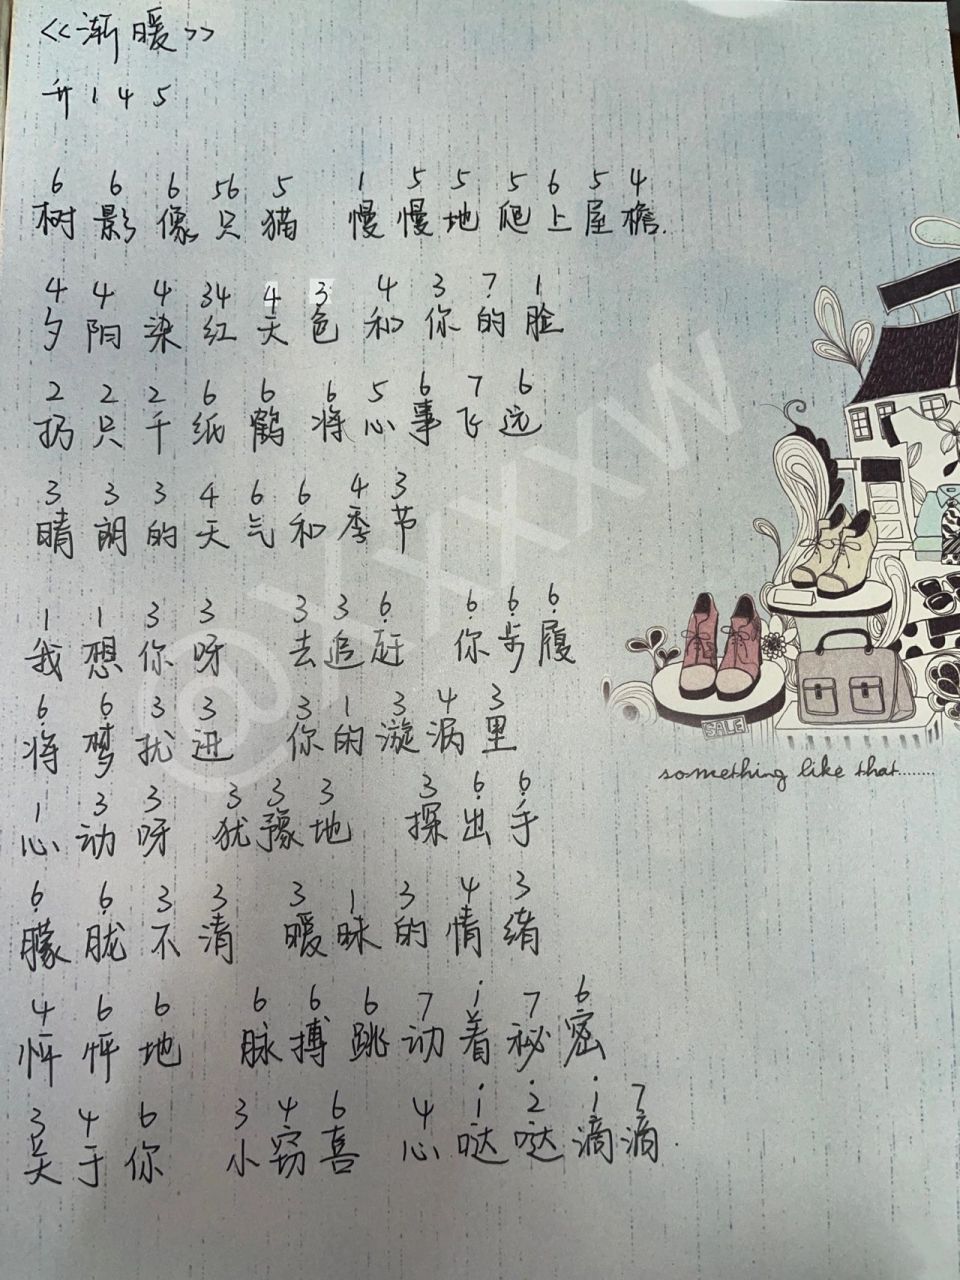 <<渐暖>>
升 1 4 5
6 6 6 56 5 1 5 5 5 6 5 4
树影像只猫 慢慢地爬上屋檐.
4 4 4 34 4 3 4 3 7̣ 1
夕阳染红天色和你的脸
2 2 2 6 6 6 5 6 7 6
扔只千纸鹤将心事飞远
3 3 3 4 6 6 4 3
晴朗的天气和季节
1 1 3 3 3 3 6̣ 6̣ 6̣ 6̣
我想你呀 去追赶 你步履
6̣ 6̣ 3 3 3 1 3 4 3
将梦扰进 你的漩涡里
1 3 3 3 3 3 3 6̣ 6̣
心动呀 犹豫地 探出手
6̣ 6̣ 3 3 3 1 3 4 3
朦胧不清 暧昧的情绪
4 6 6 6 6 6 7 i 7 6
怦怦地 脉搏跳动着秘密
3 4 6 3 4 6 4 i 2̇ i 7
关于你 小窃喜 心哒哒滴滴.
SALE
something like that........
@YXXXW